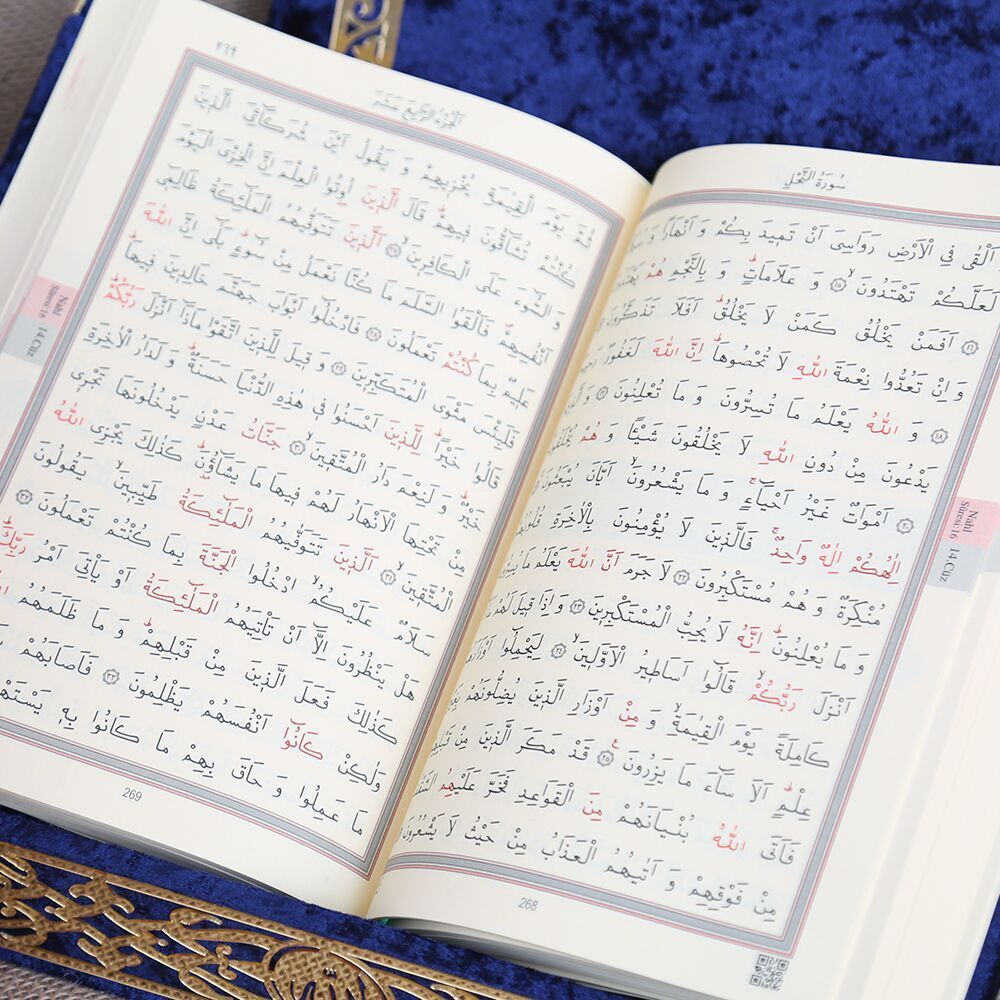 سُورَةُ النَّحْلِ
اَلْقٰى فِي الْاَرْضِ رَوَاسِيَ اَنْ تَمٖيدَ بِكُمْ وَ اَنْهَارًا وَ
لَعَلَّكُمْ تَهْتَدُونَۙ ﴿١٥﴾ وَ عَلَامَاتٍۜ وَ بِالنَّجْمِ هُمْ يَهْتَدُونَ
﴿١٦﴾ اَفَمَنْ يَخْلُقُ كَمَنْ لَا يَخْلُقُۜ اَفَلَا تَذَكَّرُونَ
وَ اِنْ تَعُدُّوا نِعْمَةَ اللّٰهِ لَا تُحْصُوهَاۜ اِنَّ اللّٰهَ لَغَفُورٌ رَحٖيمٌ
﴿١٨﴾ وَ اللّٰهُ يَعْلَمُ مَا تُسِرُّونَ وَ مَا تُعْلِنُونَ ﴿١٩﴾ وَ الَّذٖينَ
يَدْعُونَ مِنْ دُونِ اللّٰهِ لَا يَخْلُقُونَ شَيْـًٔا وَ هُمْ يُخْلَقُونَۜ
﴿٢٠﴾ اَمْوَاتٌ غَيْرُ اَحْيَٓاءٍۚ وَ مَا يَشْعُرُونَۙ اَيَّانَ يُبْعَثُونَ
اِلٰهُكُمْ اِلٰهٌ وَاحِدٌۚ فَالَّذٖينَ لَا يُؤْمِنُونَ بِالْاٰخِرَةِ قُلُوبُهُمْ
مُنْكِرَةٌ وَ هُمْ مُسْتَكْبِرُونَ ﴿٢٢﴾ لَا جَرَمَ اَنَّ اللّٰهَ يَعْلَمُ مَا يُسِرُّونَ
وَ مَا يُعْلِنُونَۜ اِنَّهُ لَا يُحِبُّ الْمُسْتَكْبِرٖينَ ﴿٢٣﴾ وَ اِذَا قٖيلَ لَهُمْ
اَنْزَلَ رَبُّكُمْۙ قَالُٓوا اَسَاطٖيرُ الْاَوَّلٖينَۙ ﴿٢٤﴾ لِيَحْمِلُٓوا اَوْزَارَهُمْ
كَامِلَةً يَوْمَ الْقِيٰمَةِۙ وَ مِنْ اَوْزَارِ الَّذٖينَ يُضِلُّونَهُمْ بِغَيْرِ
عِلْمٍۜ اَلَا سَٓاءَ مَا يَزِرُونَ۟ ﴿٢٥﴾ قَدْ مَكَرَ الَّذٖينَ مِنْ قَبْلِهِمْ
فَاَتَى اللّٰهُ بُنْيَانَهُمْ مِنَ الْقَوَاعِدِ فَخَرَّ عَلَيْهِمُ السَّقْفُ
مِنْ فَوْقِهِمْ وَ اَتٰيهُمُ الْعَذَابُ مِنْ حَيْثُ لَا يَشْعُرُونَ
268
Nahl
Sûresi:16
14.Cüz
٢٦٩
اَلْجُزْءُ الرَّابِعَ عَشَرَ
ثُمَّ يَوْمَ الْقِيٰمَةِ يُخْزٖيهِمْ وَ يَقُولُ اَيْنَ شُرَكَٓائِيَ الَّذٖينَ
كُنْتُمْ تُشَٓاقُّونَ فٖيهِمْۜ قَالَ الَّذٖينَ اُوتُوا الْعِلْمَ اِنَّ الْخِزْيَ الْيَوْمَ
وَ السُّٓوءَ عَلَى الْكَافِرٖينَۙ ﴿٢٧﴾ اَلَّذٖينَ تَتَوَفّٰيهُمُ الْمَلٰٓئِكَةُ ظَالِمٖٓي
اَنْفُسِهِمْۖ فَاَلْقَوُا السَّلَمَ مَا كُنَّا نَعْمَلُ مِنْ سُٓوءٍۜ بَلٰٓى اِنَّ اللّٰهَ
عَلٖيمٌ بِمَا كُنْتُمْ تَعْمَلُونَ ﴿٢٨﴾ فَادْخُلُٓوا اَبْوَابَ جَهَنَّمَ خَالِدٖينَ فٖيهَاۜ
فَلَبِئْسَ مَثْوَى الْمُتَكَبِّرٖينَ ﴿٢٩﴾ وَ قٖيلَ لِلَّذٖينَ اتَّقَوْا مَاذَٓا اَنْزَلَ رَبُّكُمْۜ
قَالُوا خَيْرًاۜ لِلَّذٖينَ اَحْسَنُوا فٖي هٰذِهِ الدُّنْيَا حَسَنَةٌۜ وَ لَدَارُ الْاٰخِرَةِ
خَيْرٌۜ وَ لَنِعْمَ دَارُ الْمُتَّقٖينَۙ ﴿٣٠﴾ جَنَّاتُ عَدْنٍ يَدْخُلُونَهَا تَجْرٖي
مِنْ تَحْتِهَا الْاَنْهَارُ لَهُمْ فٖيهَا مَا يَشَٓاؤُ۫نَۜ كَذٰلِكَ يَجْزِي اللّٰهُ
الْمُتَّقٖينَۙ ﴿٣١﴾ اَلَّذٖينَ تَتَوَفّٰيهُمُ الْمَلٰٓئِكَةُ طَيِّبٖينَۙ يَقُولُونَ
سَلَامٌ عَلَيْكُمُۙ ادْخُلُوا الْجَنَّةَ بِمَا كُنْتُمْ تَعْمَلُونَ ﴿٣٢﴾
هَلْ يَنْظُرُونَ اِلَّٓا اَنْ تَاْتِيَهُمُ الْمَلٰٓئِكَةُ اَوْ يَاْتِيَ اَمْرُ رَبِّكَۜ
كَذٰلِكَ فَعَلَ الَّذٖينَ مِنْ قَبْلِهِمْۜ وَ مَا ظَلَمَهُمُ
وَلٰكِنْ كَانُٓوا اَنْفُسَهُمْ يَظْلِمُونَ ﴿٣٣﴾ فَاَصَابَهُمْ
مَا عَمِلُوا وَ حَاقَ بِهِمْ مَا كَانُوا بِهٖ
269
Nahl
Sûresi:16
14.Cüz